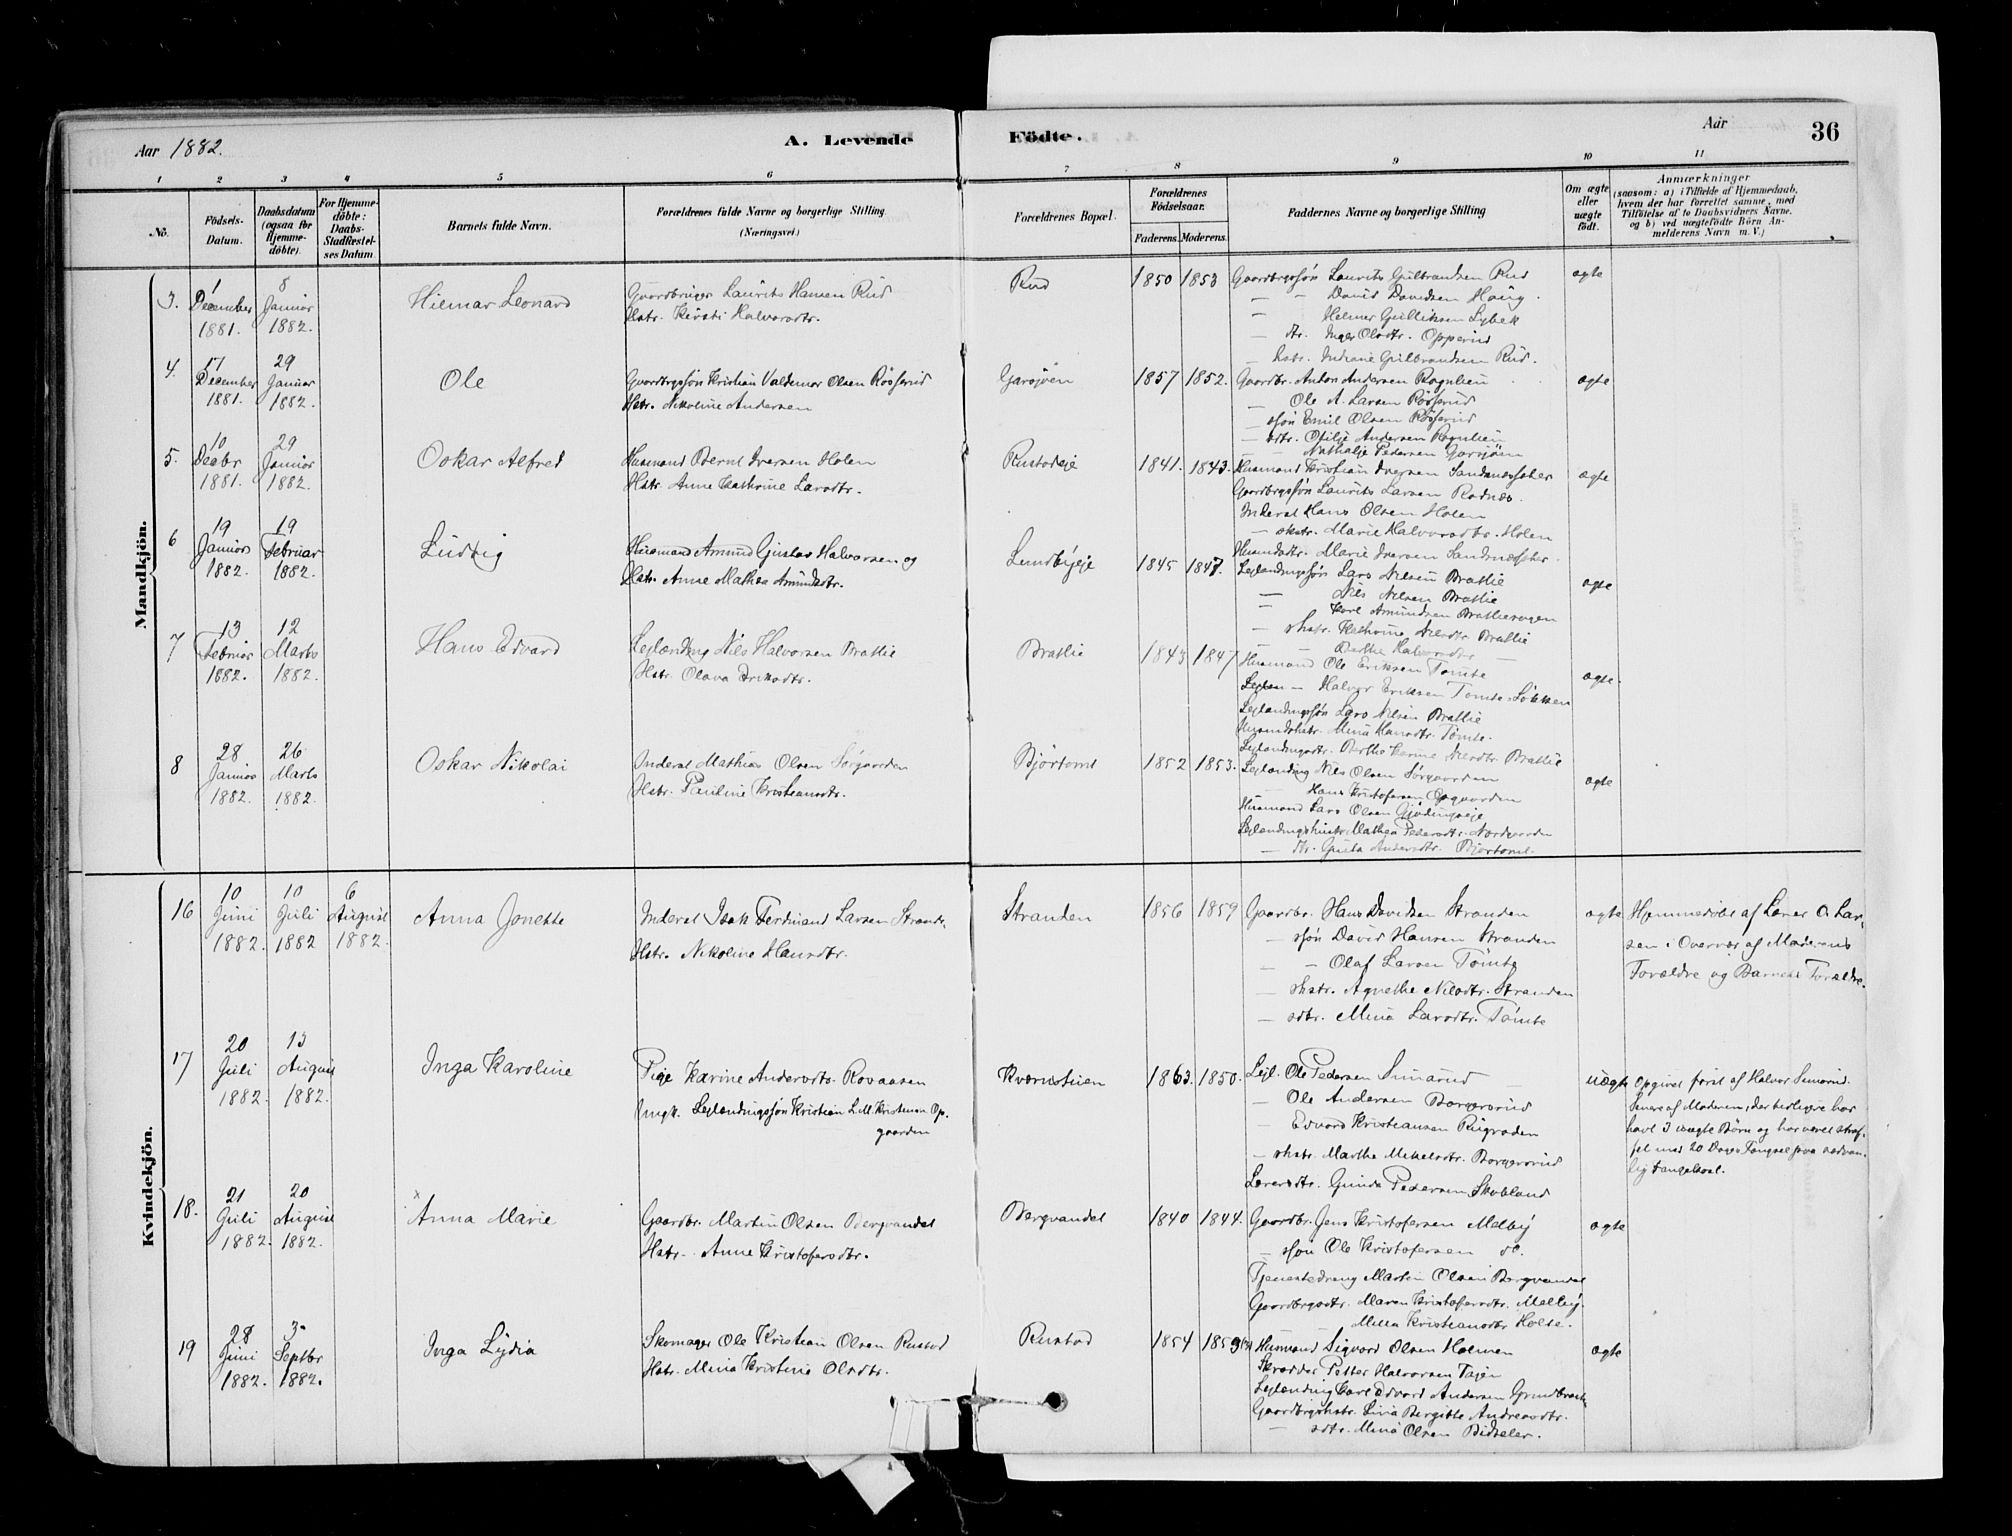 Aar 1882.
A. Levende
Födte.
Aar
36
1 2 3 4 5 6 7 8 9 10 11
No.
Födsels-Datum.
Daabsdatum (ogsaa for Hjemmedöbte).
For Hjemmedöbte: Daabs-Stadfæstelses Datum.
Barnets fulde Navn.
Forældrenes fulde Navne og borgerlige Stilling (Næringsvei.)
Forældrenes Bopæl.
Forældrenes Födselsaar.
Faderens. Moderens.
Faddernes Navne og borgerlige Stilling
Om ægte eller uægte födt.
Anmærkninger
(saasom: a) i Tilfælde af Hjemmedaab,
hvem der har forrettet samme, med
Tilföielse af to Daabsvidners Navne.
og b) ved uægtefödte Börn An-
melderens Navn m. V.)
Mandkjön.
3. 1 December 1881. 8 Januar 1882.
Hilmar Leonard
Gaardbruger Laurits Hansen Rud
Hstr. Kirsti Halvorsdtr.
Rud
1850 1853
Gaardbrgssøn Laurits Gulbrandsen Rud
— — David Davidsen Haug
— Helmer Gulliksen Lybek
— dtr. Inger Olsdtr. Opperud
— hstr. Indiane Gulbrandsen Rud.
ægte
4. 17 December 1881. 29 Januar 1882.
Ole
Gaardbrgssøn Kristian Valdemar Olsen Røsserud
Hstr. Nikoline Andersen
Garsjøen
1857 1852.
Gaardbr. Anton Andersen Rognlien
— Ole A. Larsen Røsserud
— søn Emil Olsen Røsserud
— dtr. Otilje Andersen Rognlien
— — Nathalje Pedersen Garsjøen
ægte
5. 10 Decbr 1881. 29 Januar 1882.
Oskar Alfred
Husmand Bernt Iversen Holen
Hstr. Anne Kathrine Larsdtr.
Rustadeje
1841. 1843.
Husmand Kristian Iversen
Gaardbrgssøn Laurits Larsen Rodnæs.
Inderst Hans Olsen Holen
— hstr. Marie Halvorsdtr. Holen
Husmdstr. Marie Iversen
ægte
6 19 Januar 1882. 19 Februar 1882.
Ludvig
Husmand Amund Gustav Halvorsen og
Hstr. Anne Mathea Amundsdtr.
Lundbyeje
1845 1847.
Lejlændingssøn Lars Nilsen Bratlie
— Nils Nilsen Bratlie
— Karl Amundsen
— hstr. Kathrine Nilsdtr Bratlie
— — Berthe Halvorsdtr —
ægte
7 13 Februar 1882. 12 Marts 1882.
Hans Edvard
Lejlænding Nils Halvorsen Bratlie
Hstr. Olava Eriksdtr.
Bratlie
1843 1847
Husmand Ole Eriksen Tomte
Lejlæn — Halvor Eriksen Tomte-Løkken
Lejlændingssøn Lars Nilsen Bratlie
Husmdshstr. Mina Hansdtr. Tomte.
Lejlændingsdtr. Berthe Karine Nilsdtr Bratlie
ægte.
8 28 Januar 1882. 26 Marts 1882.
Oskar Nikolai
Inderst Mathias Olsen Sørgaarden
Hstr. Pauline Kristiansdtr.
Bjørtomt
1852 1853.
Lejlænding Nils Olsen Sørgaarden
— Hans Kristofersen Opgaarden
Husmand Lars Olsen Gjødingseje
Lejlændingshustr. Mathea Pedersdtr. Nordgarden
— dtr. Gusta Andersdtr. Bjørtomt.
ægte
Kvindekjön.
16 10 Juni 1882. 10 Juli 1882 6 August 1882.
Anna Jonette
Inderst Isak Ferdinand Larsen Strande.
Hstr. Nikoline Hansdtr.
Stranden
1856 1859
Gaardbr. Hans Davidsen Stranden
— søn David Hansen Stranden
— — Olaf Larsen Tömte
— hstr. Agnethe Nilsdtr. Stranden
— dtr. Mina Larsdtr. Tömte
ægte
Hjemmedöbt af Lærer O. Lar-
sen i Overvær af Moderens
Forældre og Barnets Forældre.
17 20 Juli 1882. 13 August 1882.
Inga Karoline
Pige Karine Andersdtr. Rovaasen
Ungk. Lejlændingssøn Kristian L.M. Kristensen Op-
gaarden
Kværnstuen
1863. 1850.
Lejl. Ole Pedersen Smarud
— Ole Andersen Borgersrud
— Edvard Kristiansen Rugraden
— hstr. Marthe Mikelsdtr. Borgersrud
Lærersdtr. Gunda Pedersen Skobland
uægte
Opgivet först af Halvor Smarud.
Senere af Moderen, der tidligere har
havt 3 uægte Börn og har været straf-
fet med 20 Dages Fængsel paa sædvan-
lig Fangekost.
18. 21 Juli 1882. 20 August 1882.
× Anna Marie
Gaardbr. Martin Olsen Bergvandet
Hstr. Anne Kristofersdtr.
Bergvandet
1840 1844.
Gaardbr. Jens Kristofersen Melby
— søn Ole Kristofersen do.
Tjenestedreng Martin Olsen Bergvandet
Gaardbrgsdtr. Maren Kristofersdtr. Melby.
Milla Kristiansdtr Holte.
ægte
19 28 Juni 1882. 3. Septbr 1882.
Inga Lydia
Skomager Ole Kristian Olsen Rustad
Hstr. Mina Kristine Olsdtr.
Rustad
1854 1859
Husmand Sigvard Olsen Holmen
Skrædder Petter Halvorsen Tajen
Lejlænding Karl Edvard Andersen
Gaardbrgshstr. Lina Bergitte Andreasdtr.
— dtr. Mina Olsen Bidseler.
ægte